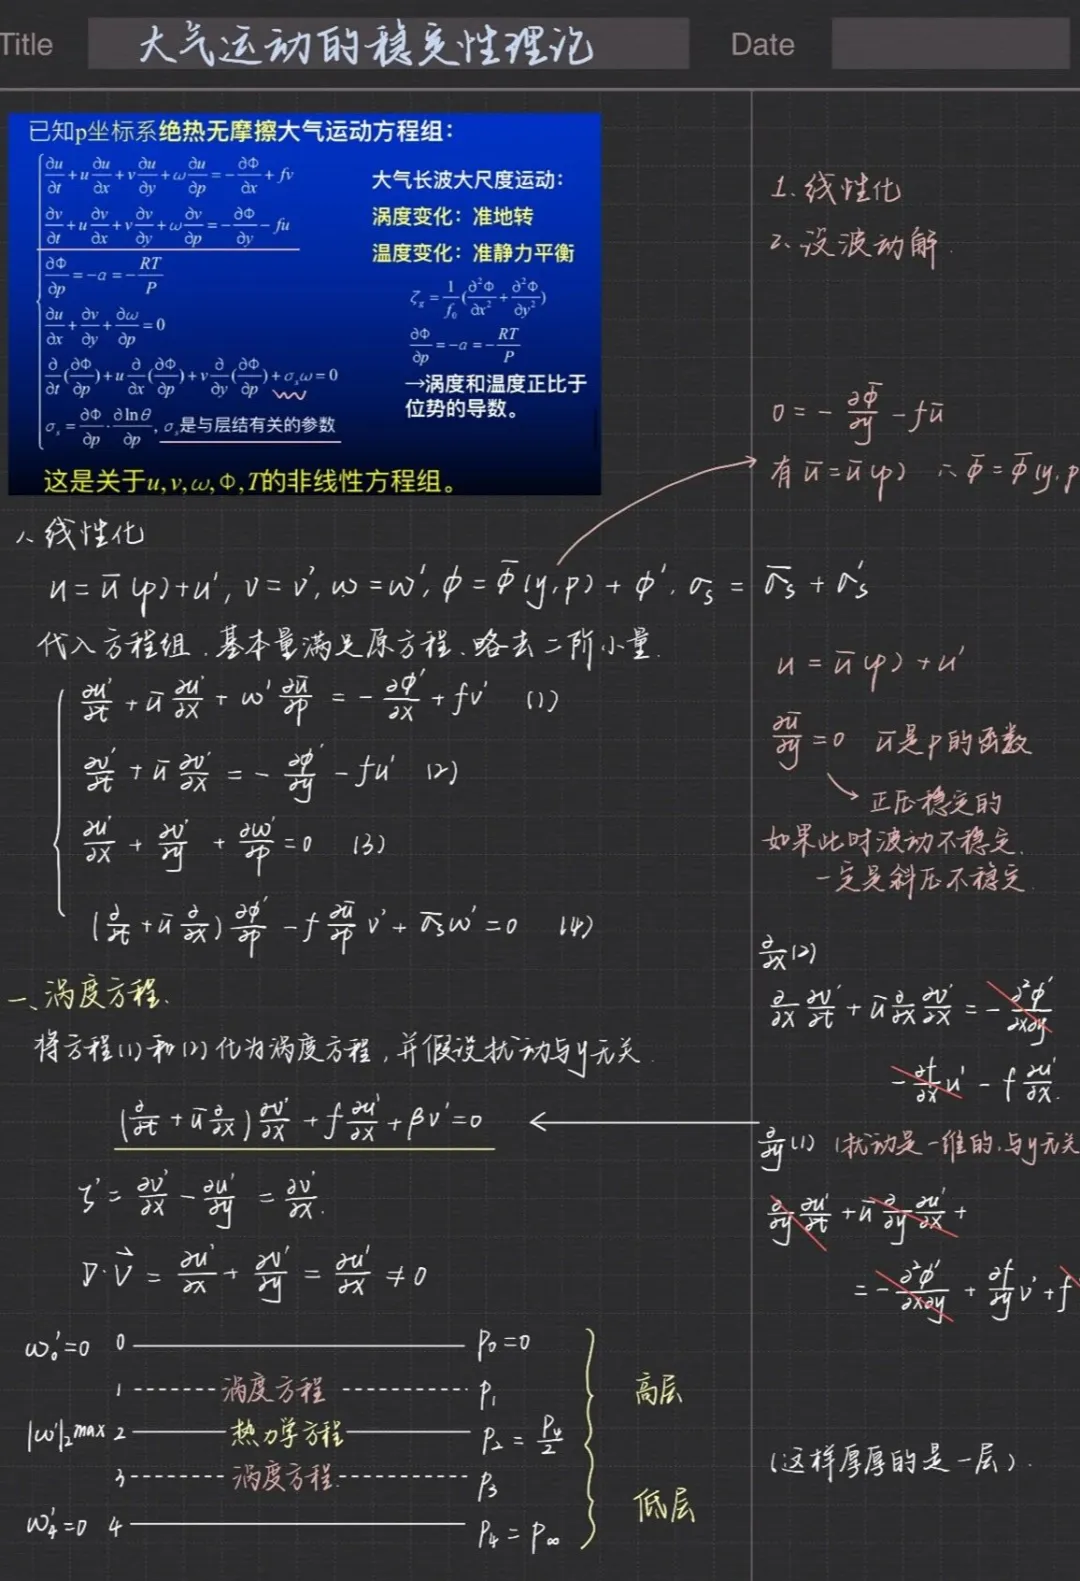 Title 大气运动的稳定性理论 Date
已知p坐标系绝热无摩擦大气运动方程组：
∂u/∂t + u ∂u/∂x + v ∂u/∂y + ω ∂u/∂p = − ∂Φ/∂x + fv
∂v/∂t + u ∂v/∂x + v ∂v/∂y + ω ∂v/∂p = − ∂Φ/∂y − fu
∂Φ/∂p = −α = − RT/P
∂u/∂x + ∂v/∂y + ∂ω/∂p = 0
∂/∂t (∂Φ/∂p) + u ∂/∂x (∂Φ/∂p) + v ∂/∂y (∂Φ/∂p) + σₛω = 0
σₛ = ∂Φ/∂p · ∂lnθ/∂p, σₛ是与层结有关的参数
大气长波大尺度运动：
涡度变化：准地转
温度变化：准静力平衡
ζg = 1/f₀ (∂²Φ/∂x² + ∂²Φ/∂y²)
∂Φ/∂p = −α = − RT/P
→涡度和温度正比于
位势的导数。
这是关于u, v, ω, Φ, T的非线性方程组。
1. 线性化
2、设波动解
0 = − ∂Φ̄/∂y − fū
有 ū = ū(p) ∴ Φ̄ = Φ̄(y, p
1、线性化
u = ū(p) + u′, v = v′, ω = ω′, ϕ = Φ̄(y, p) + ϕ′, σs = σ̄s + σ′s
代入方程组、基本量满足原方程、略去二阶小量.
∂u′/∂t + ū ∂u′/∂x + ω′ ∂ū/∂p = − ∂ϕ′/∂x + fv′ (1)
∂v′/∂t + ū ∂v′/∂x = − ∂ϕ′/∂y − fu′ (2)
∂u′/∂x + ∂v′/∂y + ∂ω′/∂p = 0 (3)
(∂/∂t + ū ∂/∂x) ∂ϕ′/∂p − f ∂ū/∂p v′ + σ̄sω′ = 0 (4)
u = ū(p) + u′
∂ū/∂y = 0 ū是p的函数
正压稳定的
如果此时波动不稳定、
一定是斜压不稳定
一、涡度方程、
将方程(1)和(2)化为涡度方程，并假设扰动与y无关.
(∂/∂t + ū ∂/∂x) ∂v′/∂x + f ∂u′/∂x + βv′ = 0
ζ′ = ∂v′/∂x − ∂u′/∂y = ∂v′/∂x.
∇·V⃗ = ∂u′/∂x + ∂v′/∂y = ∂u′/∂x ≠ 0
∂/∂x (2)
∂/∂x ∂v′/∂t + ū ∂/∂x ∂v′/∂x = − ∂²ϕ′/∂x∂y
− ∂f/∂x u′ − f ∂u′/∂x.
∂/∂y (1) (扰动是一维的，与y无关
∂/∂y ∂u′/∂t + ū ∂/∂y ∂u′/∂x +
= − ∂²ϕ′/∂x∂y + ∂f/∂y v′ + f
ω₀′ = 0 0 p₀ = 0
1 涡度方程 p₁
|ω′|₂ max 2 热力学方程 p₂ = /2
3 涡度方程. p₃
ω₄′ = 0 4 p₄ = p∞
高层
低层
(这样厚厚的是一层).